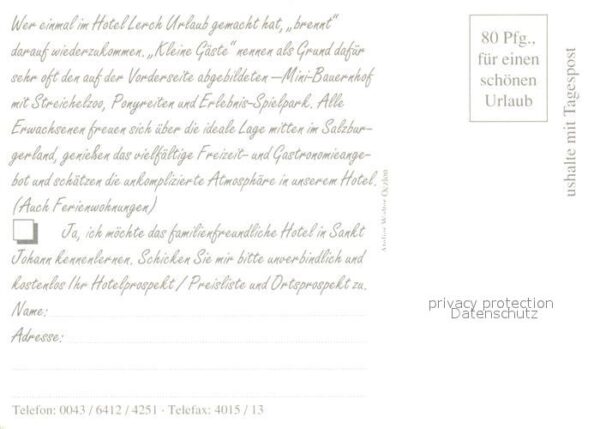 Wer einmal im Hotel Lerch Urlaub gemacht hat, „brennt"
darauf wiederzukommen. „Kleine Gäste" nennen als Grund dafür
sehr oft den auf der Vorderseite abgebildeten –Mini-Bauernhof
mit Streichelzoo, Ponyreiten und Erlebnis-Spielpark. Alle
Erwachsenen freuen sich über die ideale Lage mitten im Salzbur-
gerland, genießen das vielfältige Freizeit- und Gastronomieange-
bot und schätzen die unkomplizierte Atmosphäre in unserem Hotel.
(Auch Ferienwohnungen)
Ja, ich möchte das familienfreundliche Hotel in Sankt
Johann kennenlernen. Schicken Sie mir bitte unverbindlich und
kostenlos Ihr Hotelprospekt / Preisliste und Ortsprospekt zu.
Name:
Adresse:
Telefon: 0043 / 6412 / 4251 · Telefax: 4015 / 13
80 Pfg.,
für einen
schönen
Urlaub
ushalte mit Tagespost
privacy protection
Datenschutz